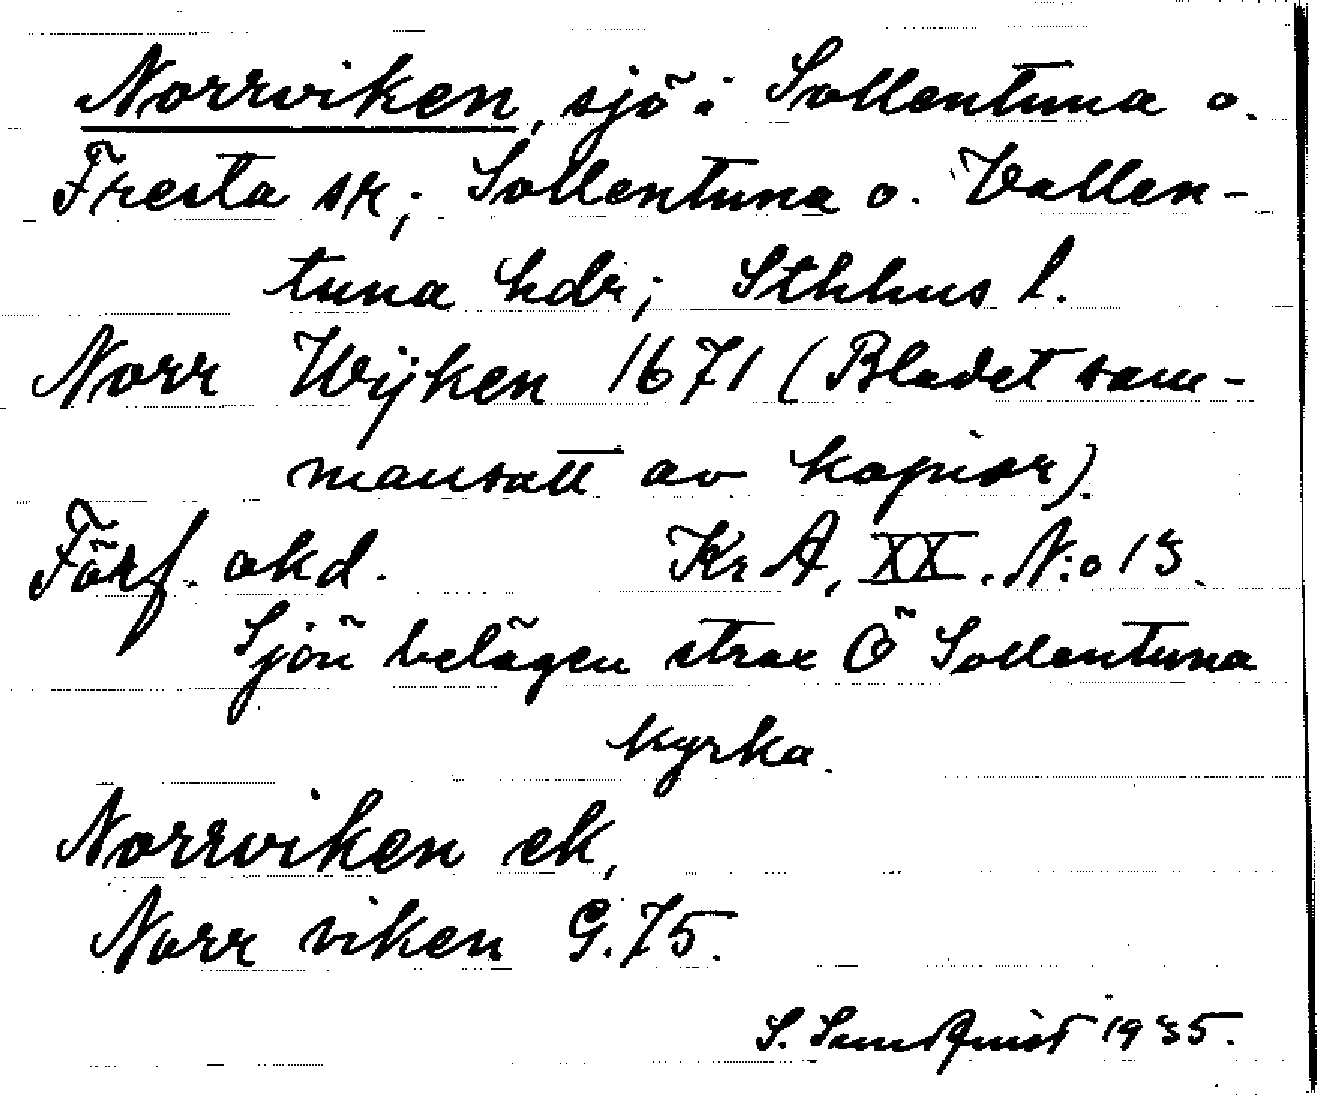 Norrviken, sjö i Sollentuna o.
Fresta sr; Sollentuna o. Vallen-
tuna hdr; Sthlms l.
Norr Wijken 1671 (Bladet sam-
mansatt av kopior).
Förf. okd. Kr A, XX. N:o 13.
Sjön belägen strax Ö Sollentuna
kyrka.
Norrviken ek,
Norr viken G. 75.
S. Sundquist 1935.